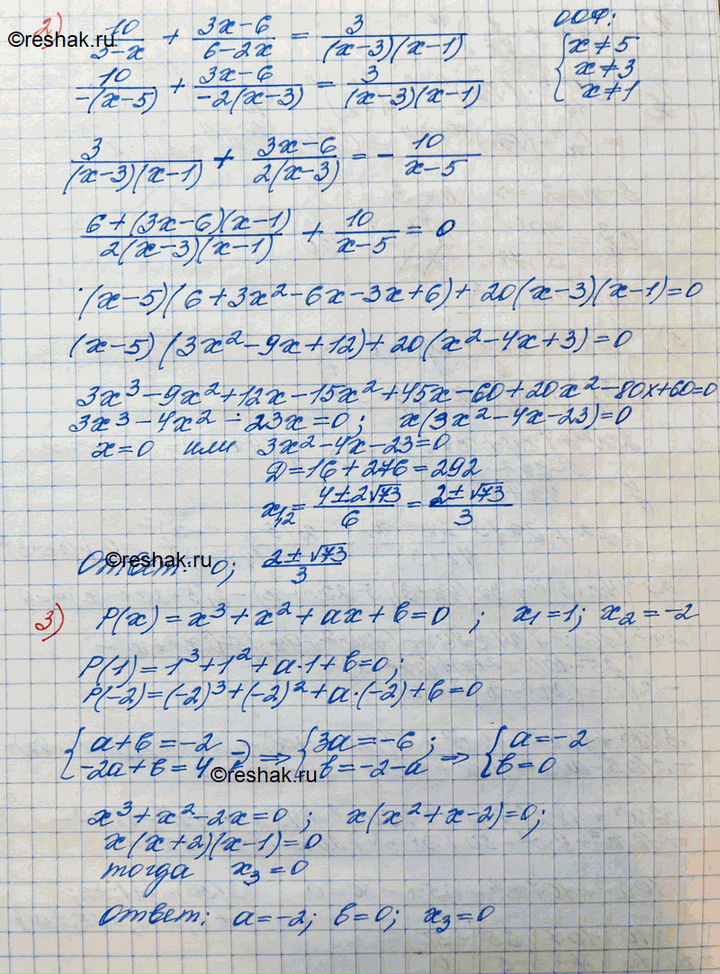 2) 10/(3-x) + (3x-6)/(6-2x) = 3/((x-3)(x-1)) ООФ:
©reshak.ru
10/(-(x-5)) + (3x-6)/(-2(x-3)) = 3/((x-3)(x-1)) { x≠5 x≠3 x≠1
3/((x-3)(x-1)) + (3x-6)/(2(x-3)) = - 10/(x-5)
(6+(3x-6)(x-1))/(2(x-3)(x-1)) + 10/(x-5) = 0
(x-5)(6+3x²-6x-3x+6)+20(x-3)(x-1)=0
(x-5)(3x²-9x+12)+20(x²-4x+3)=0
3x³-9x²+12x-15x²+45x-60+20x²-80x+60=0
3x³-4x²-23x=0; x(3x²-4x-23)=0
x=0 или 3x²-4x-23=0
Д=16+276=292
x₁,₂ = (4±2√73)/6 = (2±√73)/3
Ответ: 0; (2±√73)/3
©reshak.ru
3) P(x)=x³+x²+ax+b=0 ; x₁=1; x₂=-2
P(1)=1³+1²+a·1+b=0;
P(-2)=(-2)³+(-2)²+a·(-2)+b=0
{ a+b=-2 -2a+b=4 (-) ⇒ { 3a=-6; b=-2-a ⇒ { a=-2 b=0
©reshak.ru
x³+x²-2x=0 ; x(x²+x-2)=0;
x(x+2)(x-1)=0
тогда x₃=0
Ответ: a=-2; b=0; x₃=0